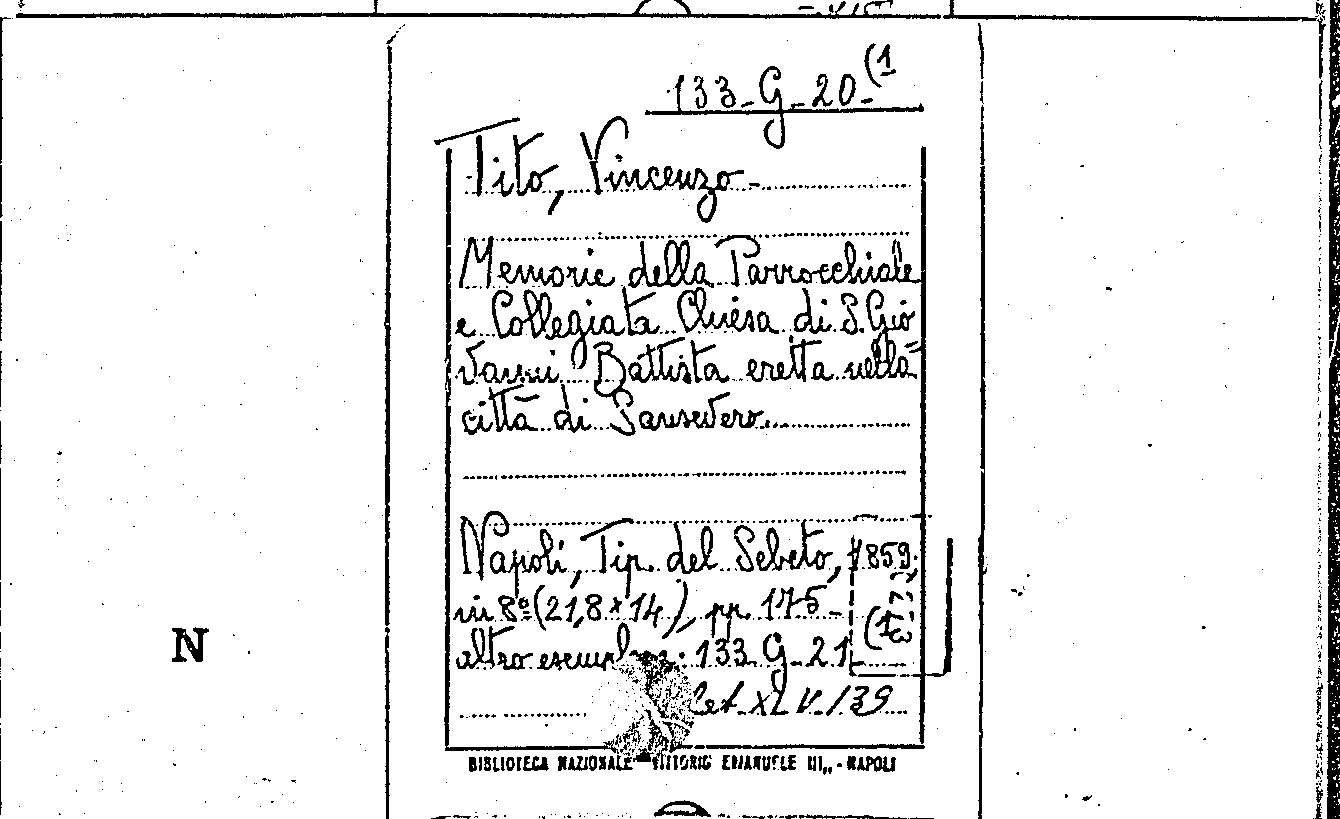 133_G_20_(1
Tito, Vincenzo_
Memorie della Parrocchiale
e Collegiata Chiesa di S. Gio
vanni Battista eretta nella
città di Sansevero.
Napoli, Tip. del Sebeto, 1859,
in 8º (21,8 x 14), pp. 175_
altro esemplare: 133_G_21
XLV. 139
N
BIBLIOTECA NAZIONALE "VITTORIO EMANUELE III„ - NAPOLI